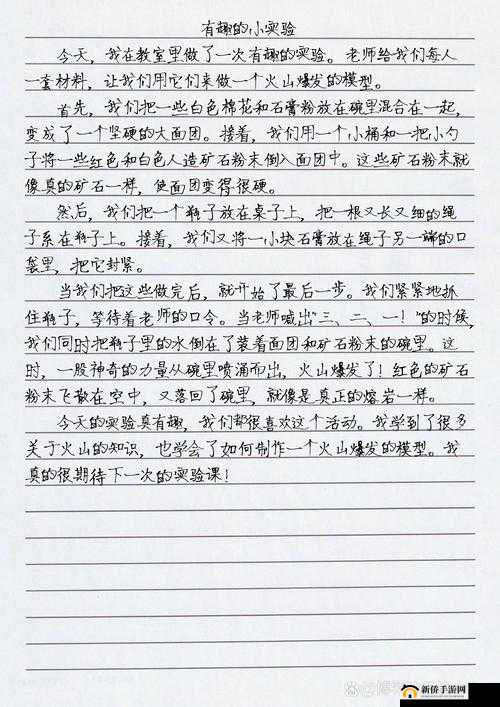 有趣的小实验
今天，我在教室里做了一次有趣的实验。老师给我们每人
一套材料，让我们用它们来做一个火山爆发的模型。
首先，我们把一些白色棉花和石膏粉放在碗里混合在一起，
变成了一个坚硬的大面团。接着，我们用一个小桶和一把小勺
子将一些红色和白色人造矿石粉末倒入面团中。这些矿石粉末就
像真的矿石一样，使面团变得很硬。
然后，我们把一个瓶子放在桌子上，把一根又长又细的绳
子系在瓶子上。接着，我们又将一小块石膏放在绳子另一端的口
袋里，把它封紧。
当我们把这些做完后，就开始了最后一步。我们紧紧地抓
住瓶子，等待着老师的口令。当老师喊出“三、二、一！”的时候，
我们同时把瓶子里的水倒在了装着面团和矿石粉末的碗里。这
时，一股神奇的力量从碗里喷涌而出，火山爆发了！红色的矿石
粉末飞散在空中，又落回了碗里，就像是真正的熔岩一样。
今天的实验真有趣，我们都很喜欢这个活动。我学到了很多
关于火山的知识，也学会了如何制作一个火山爆发的模型。我
真的很期待下一次的实验课！
新侨手游网